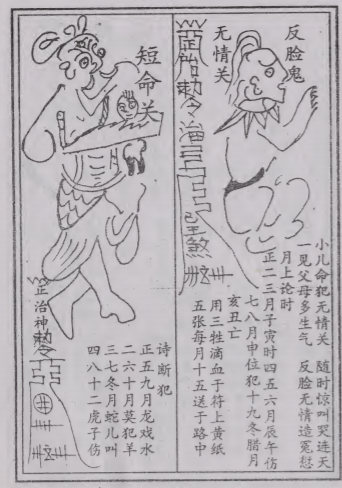 反脸鬼
无情关
小儿命犯无情关 随时惊叫哭连天
一见父母多生气 反脸无情造冤愆
月上论时
正二三月子寅时四五六月辰午伤
七八月申位犯十九冬腊月
亥丑亡
用三牲滴血于符上黄纸
五张每月十五送于路中
短命关
诗断犯
正五九月龙戏水
二六十月莫犯羊
三七冬月蛇儿叫
四八十二虎子伤